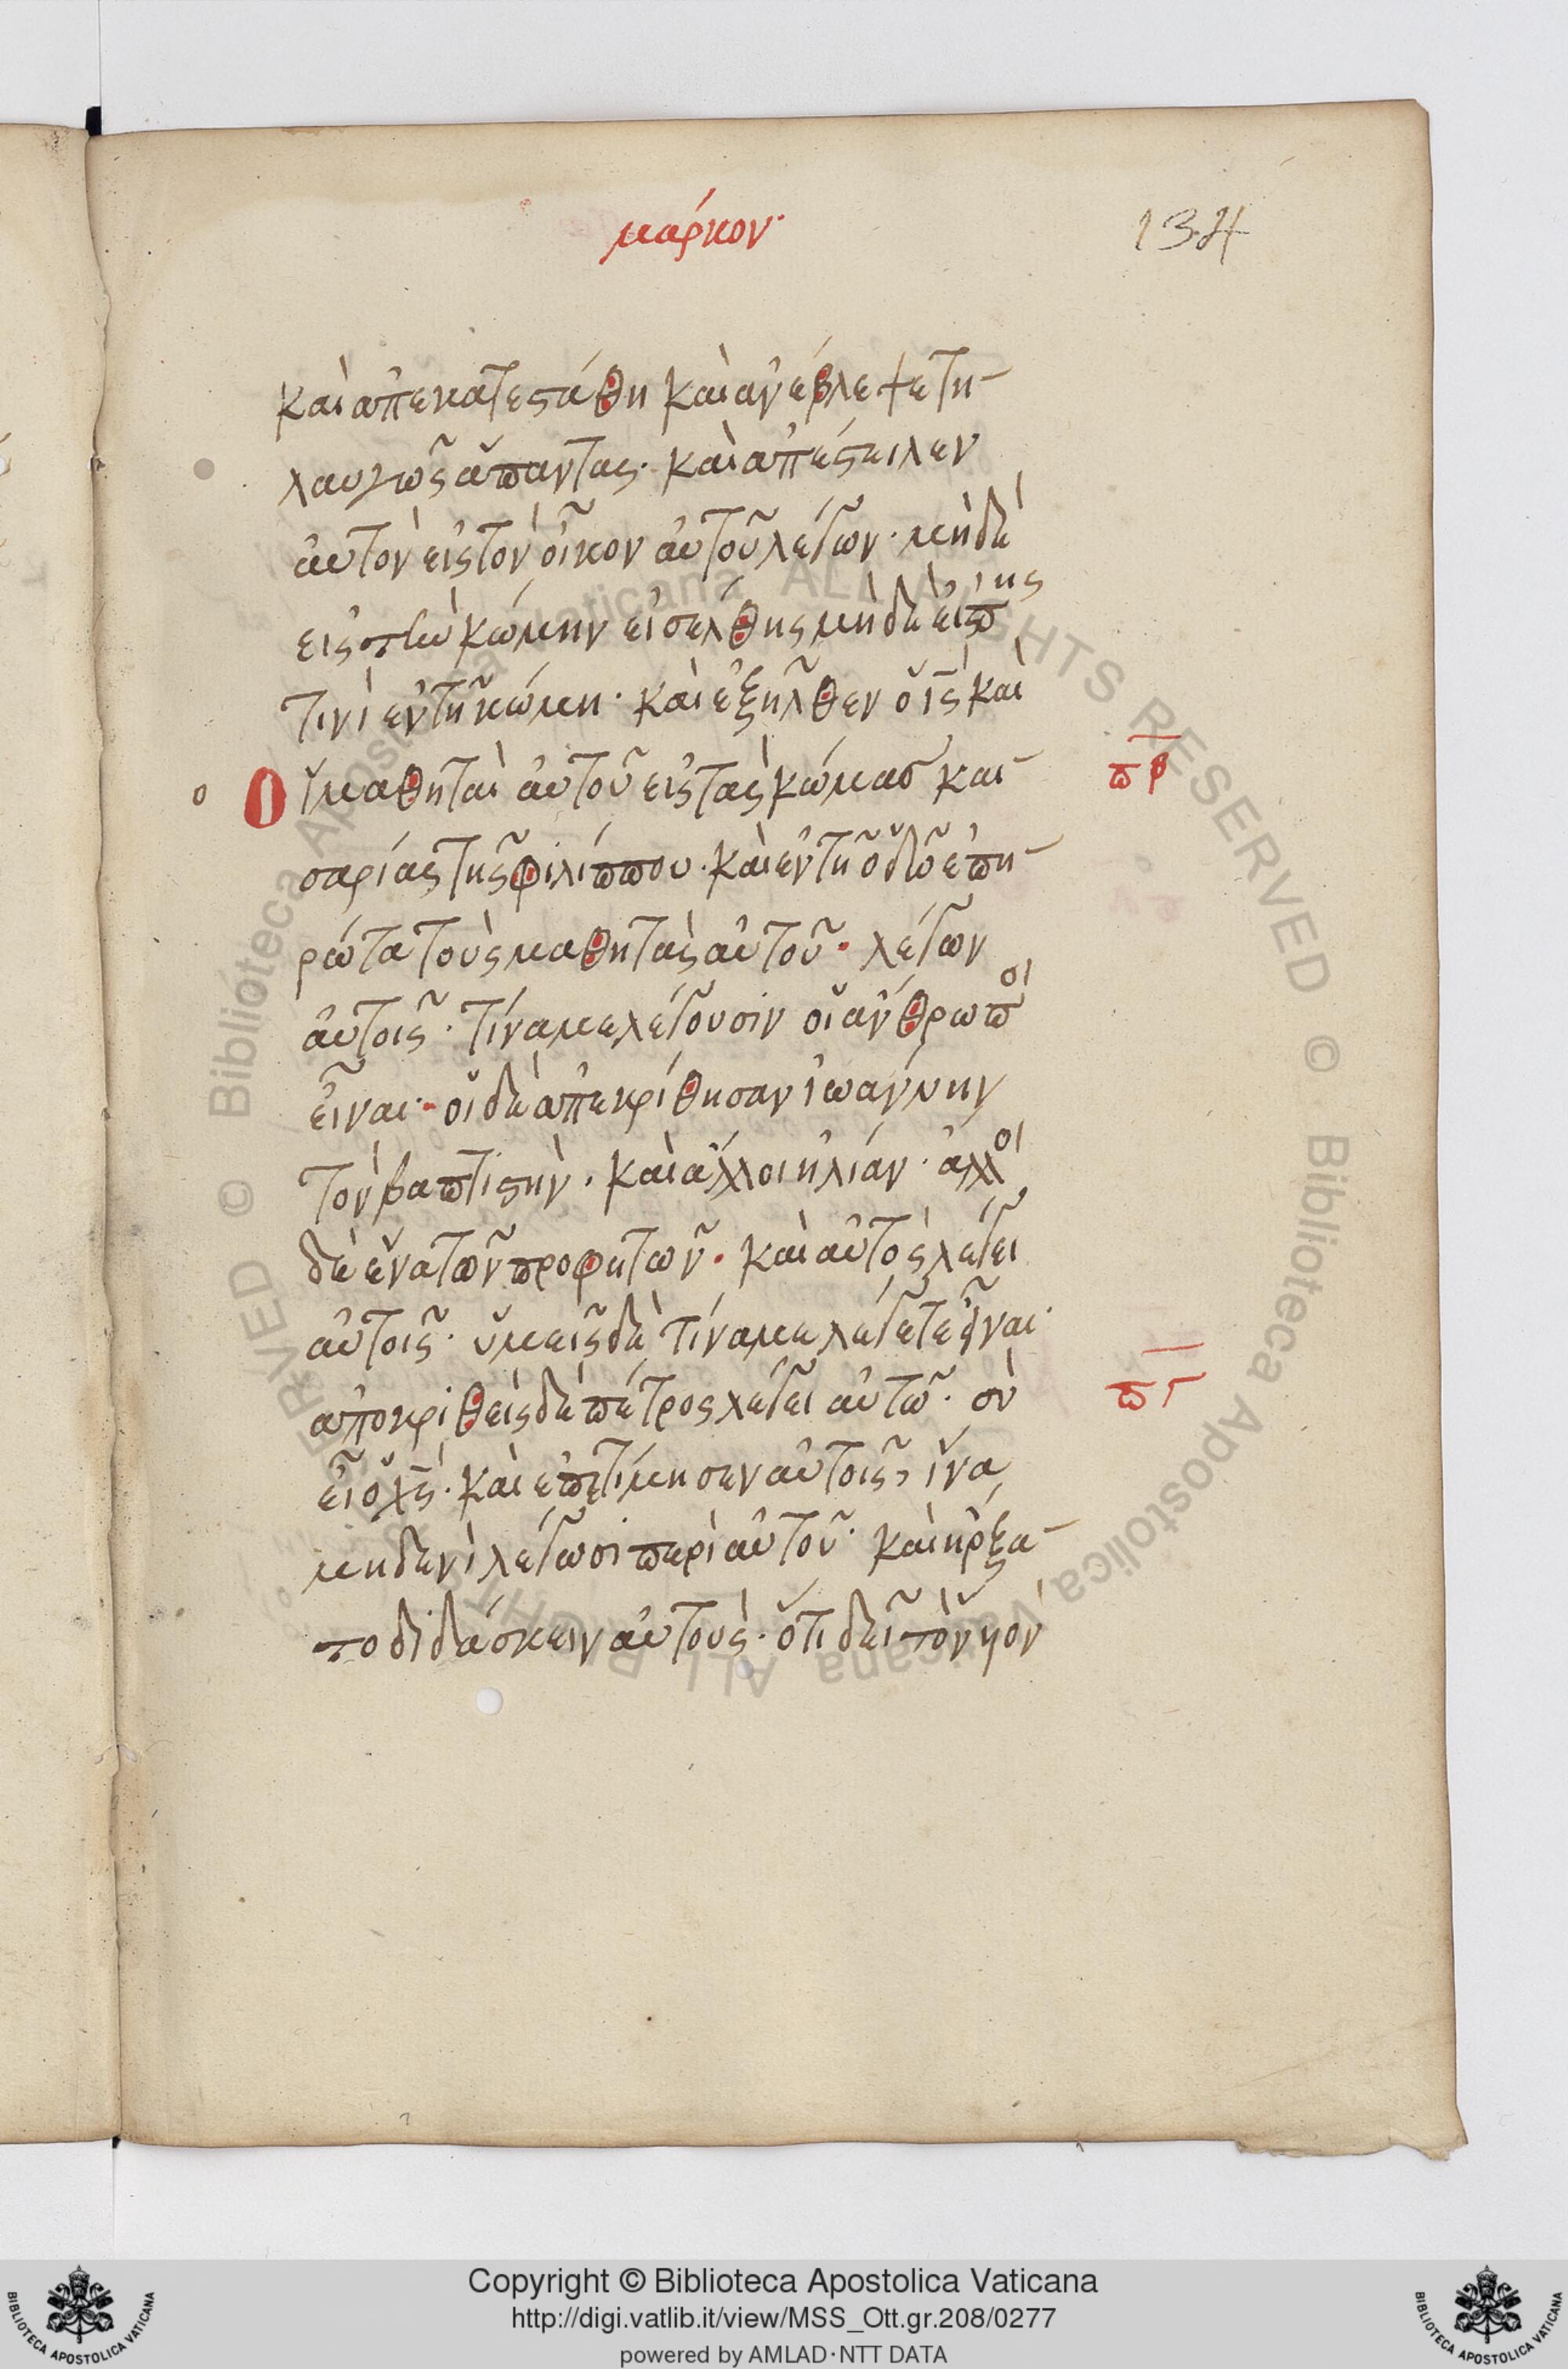 μάρκον·
134
καὶ ἀπεκατεστάθη καὶ ἀνέβλεψε τη-
λαυγῶς ἅπαντας· καὶ ἀπέστειλεν
αὐτὸν εἰς τὸν οἶκον αὐτοῦ λέγων· μὴ δὲ
εις τὴν κώμην εἰσέλθης μὴ δὲ εἴπης
τινὶ ἐν τῆ κώμη· καὶ ἐξῆλθεν ὁ ις καὶ
ο οἱ μαθηταὶ αὐτοῦ εἰς τὰς κώμασ και-
πβ
σαρίας τῆς φιλίππου· καὶ ἐν τῆ ὁδῶ ἐπη-
ρώτα τοὺς μαθητὰς αὐτοῦ· λέγων
αὐτοῖς· τίνα με λέγουσιν οἱ ἄνθρωποι
εἶναι· οἱ δὲ ἀπεκρίθησαν ἰωάννην
τὸν βαπτιστὴν· καὶ ἄλλοι ἠλίαν· ἄλλοι
δὲ ἕνα τῶν προφητῶν· καὶ αὐτὸς λέγει
αὐτοῖς· ὑμεῖς δὲ τίνα με λέγετε εἶναι·
ἀποκριθεὶς δὲ πέτρος λέγει αὐτῶ· σὺ
πγ
εἶ ὁ χς· καὶ ἐπετίμησεν αὐτοῖς, ἵνα
μηδενὶ λέγωσι περὶ αὐτοῦ· καὶ ἤρξα-
το διδάσκειν αὐτοὺς· ὅτι δεῖ τὸν υἱὸν
Copyright © Biblioteca Apostolica Vaticana
http://digi.vatlib.it/view/MSS_Ott.gr.208/0277
powered by AMLAD·NTT DATA
BIBLIOTECA APOSTOLICA VATICANA
BIBLIOTECA APOSTOLICA VATICANA